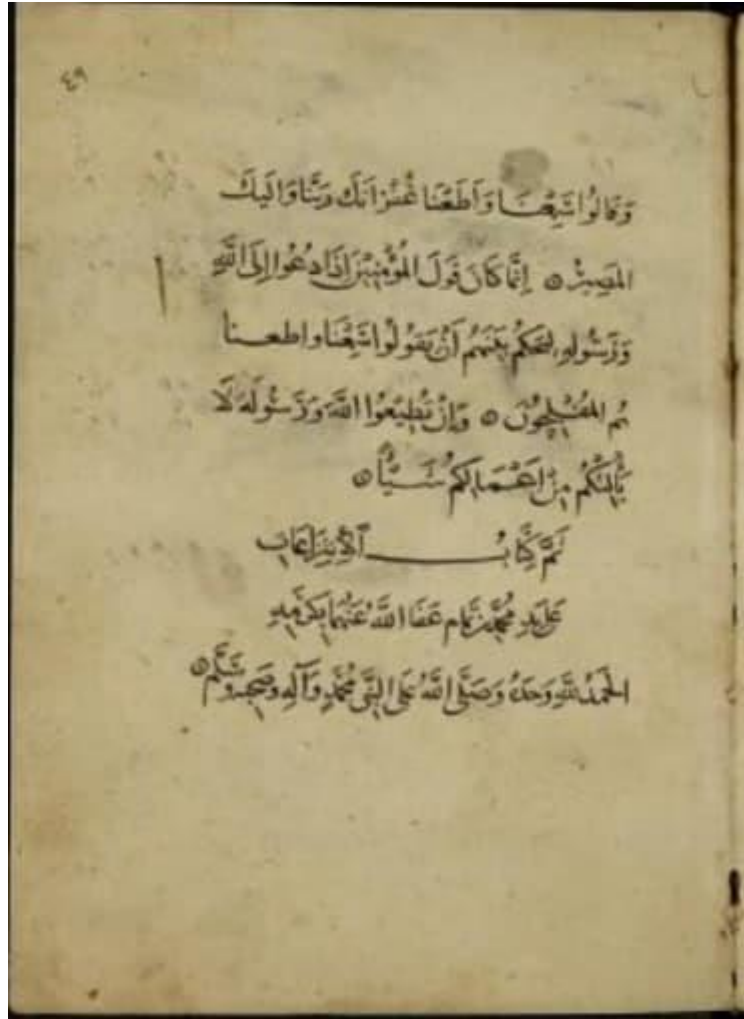 ٤٩
وَقَالُوا سَمِعْنَا وَاَطَعْنَا غُفْرَانَكَ رَبَّنَا وَاِلَيكَ
المَصِيرُ ۝ اِنَّمَا كَانَ قَولَ المُؤْمِنِينَ اِذَا دُعُوا اِلَى اللَّهِ
وَرَسُولِهِ لِيَحْكُمَ بَيْنَهُم اَنْ يَقُولُوا سَمِعْنَا واطعنا
هُم المُفْلِحُونَ ۝ وَاِنْ تُطِيعُوا اللَّهَ وَرَسُولَهُ لَا
يَأْلِتْكُم مِنْ اَعْمَالِكُم شَيْئًا ۝
تَمَّ كِتَابُ الاِنْتِزَاعَاتِ
عَلَى يَدِ مُحَمَّد بن تمام عَفَا اللَّهُ عَنْهُمَا بِكَرَمِهِ
الحَمْدُ لِلَّهِ وَحدَهُ وَصَلَّى اللَّهُ عَلَى النَّبِي مُحَمَّدٍ وَآلِهِ وَصَحبِهِ وَسَلَّم ۝